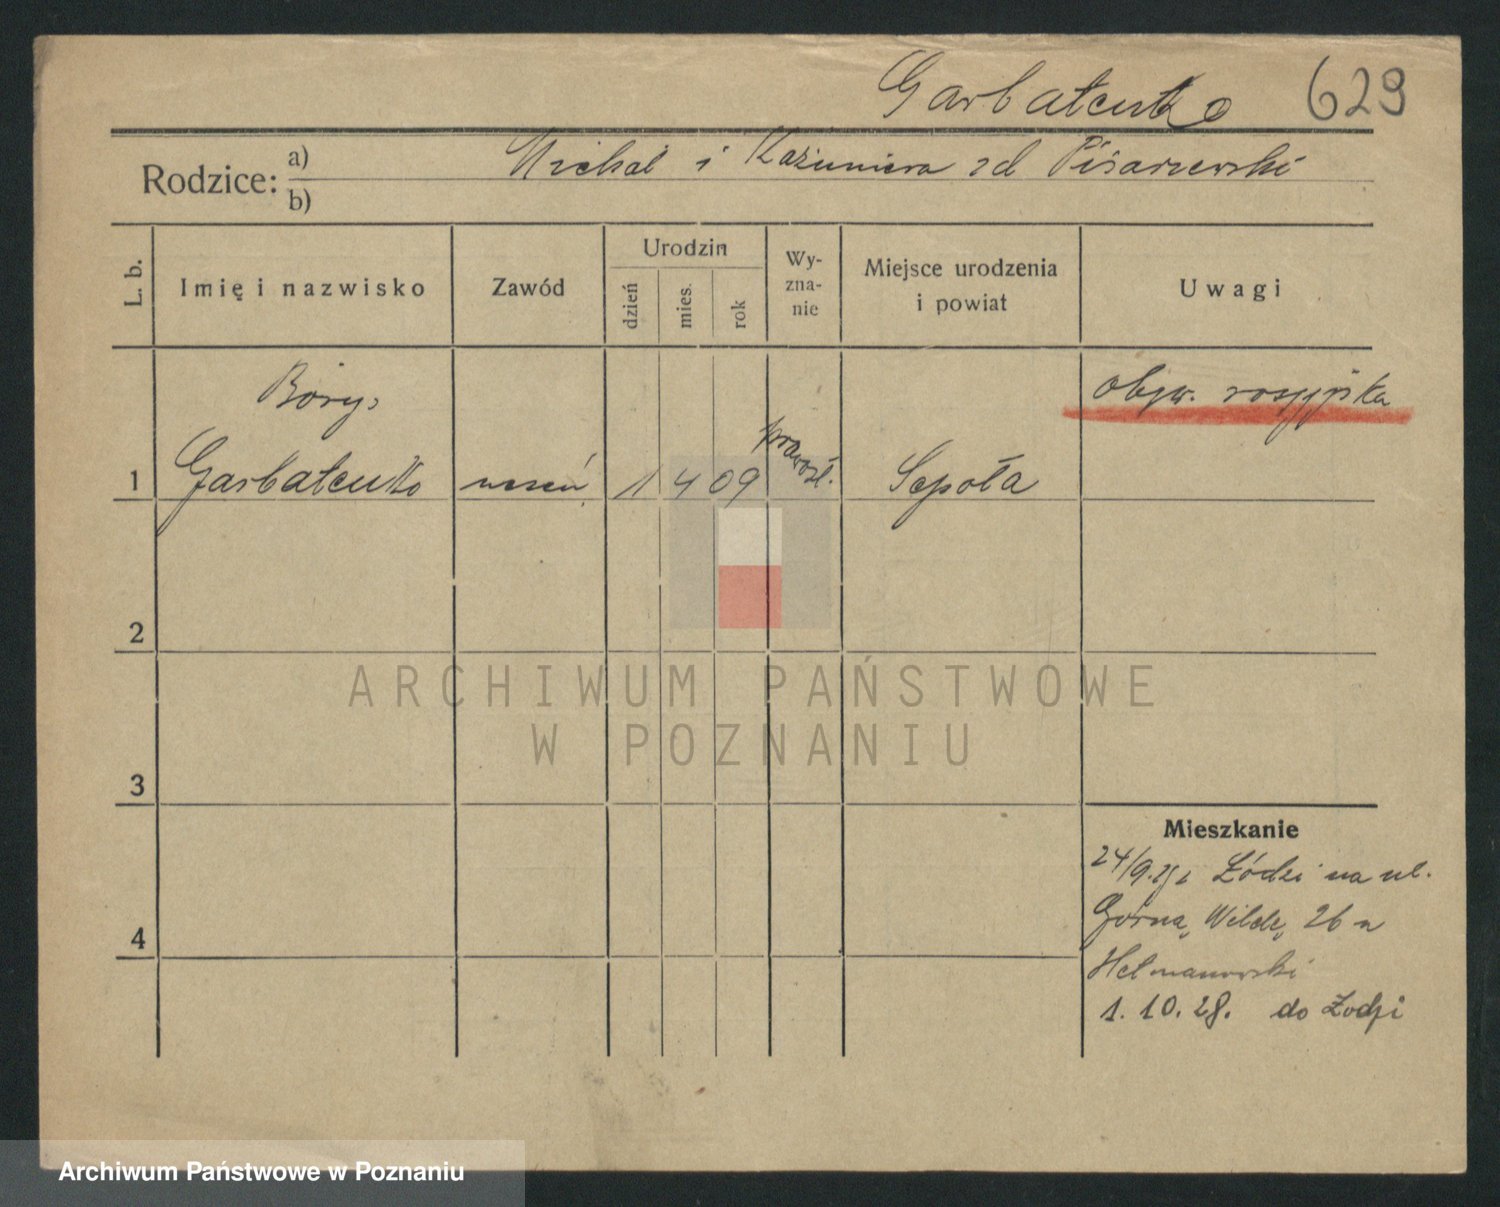 Garbatenko 629
Rodzice: a) Michał i Kazimiera zd Pisarzewski
b)
L. b.
Imię i nazwisko
Zawód
Urodzin
dzień
mies.
rok
Wy-
zna-
nie
Miejsce urodzenia
i powiat
Uwagi
Borys
obyw. rosyjska
1 Garbatenko uczeń 1 4 09 prawosł. Szpoła
2
3
4
Mieszkanie
24/9. z Łódzi na ul.
Górną Wildę 26 u
Hetmanowski
1. 10. 28. do Łodzi
ARCHIWUM PAŃSTWOWE
W POZNANIU
Archiwum Państwowe w Poznaniu